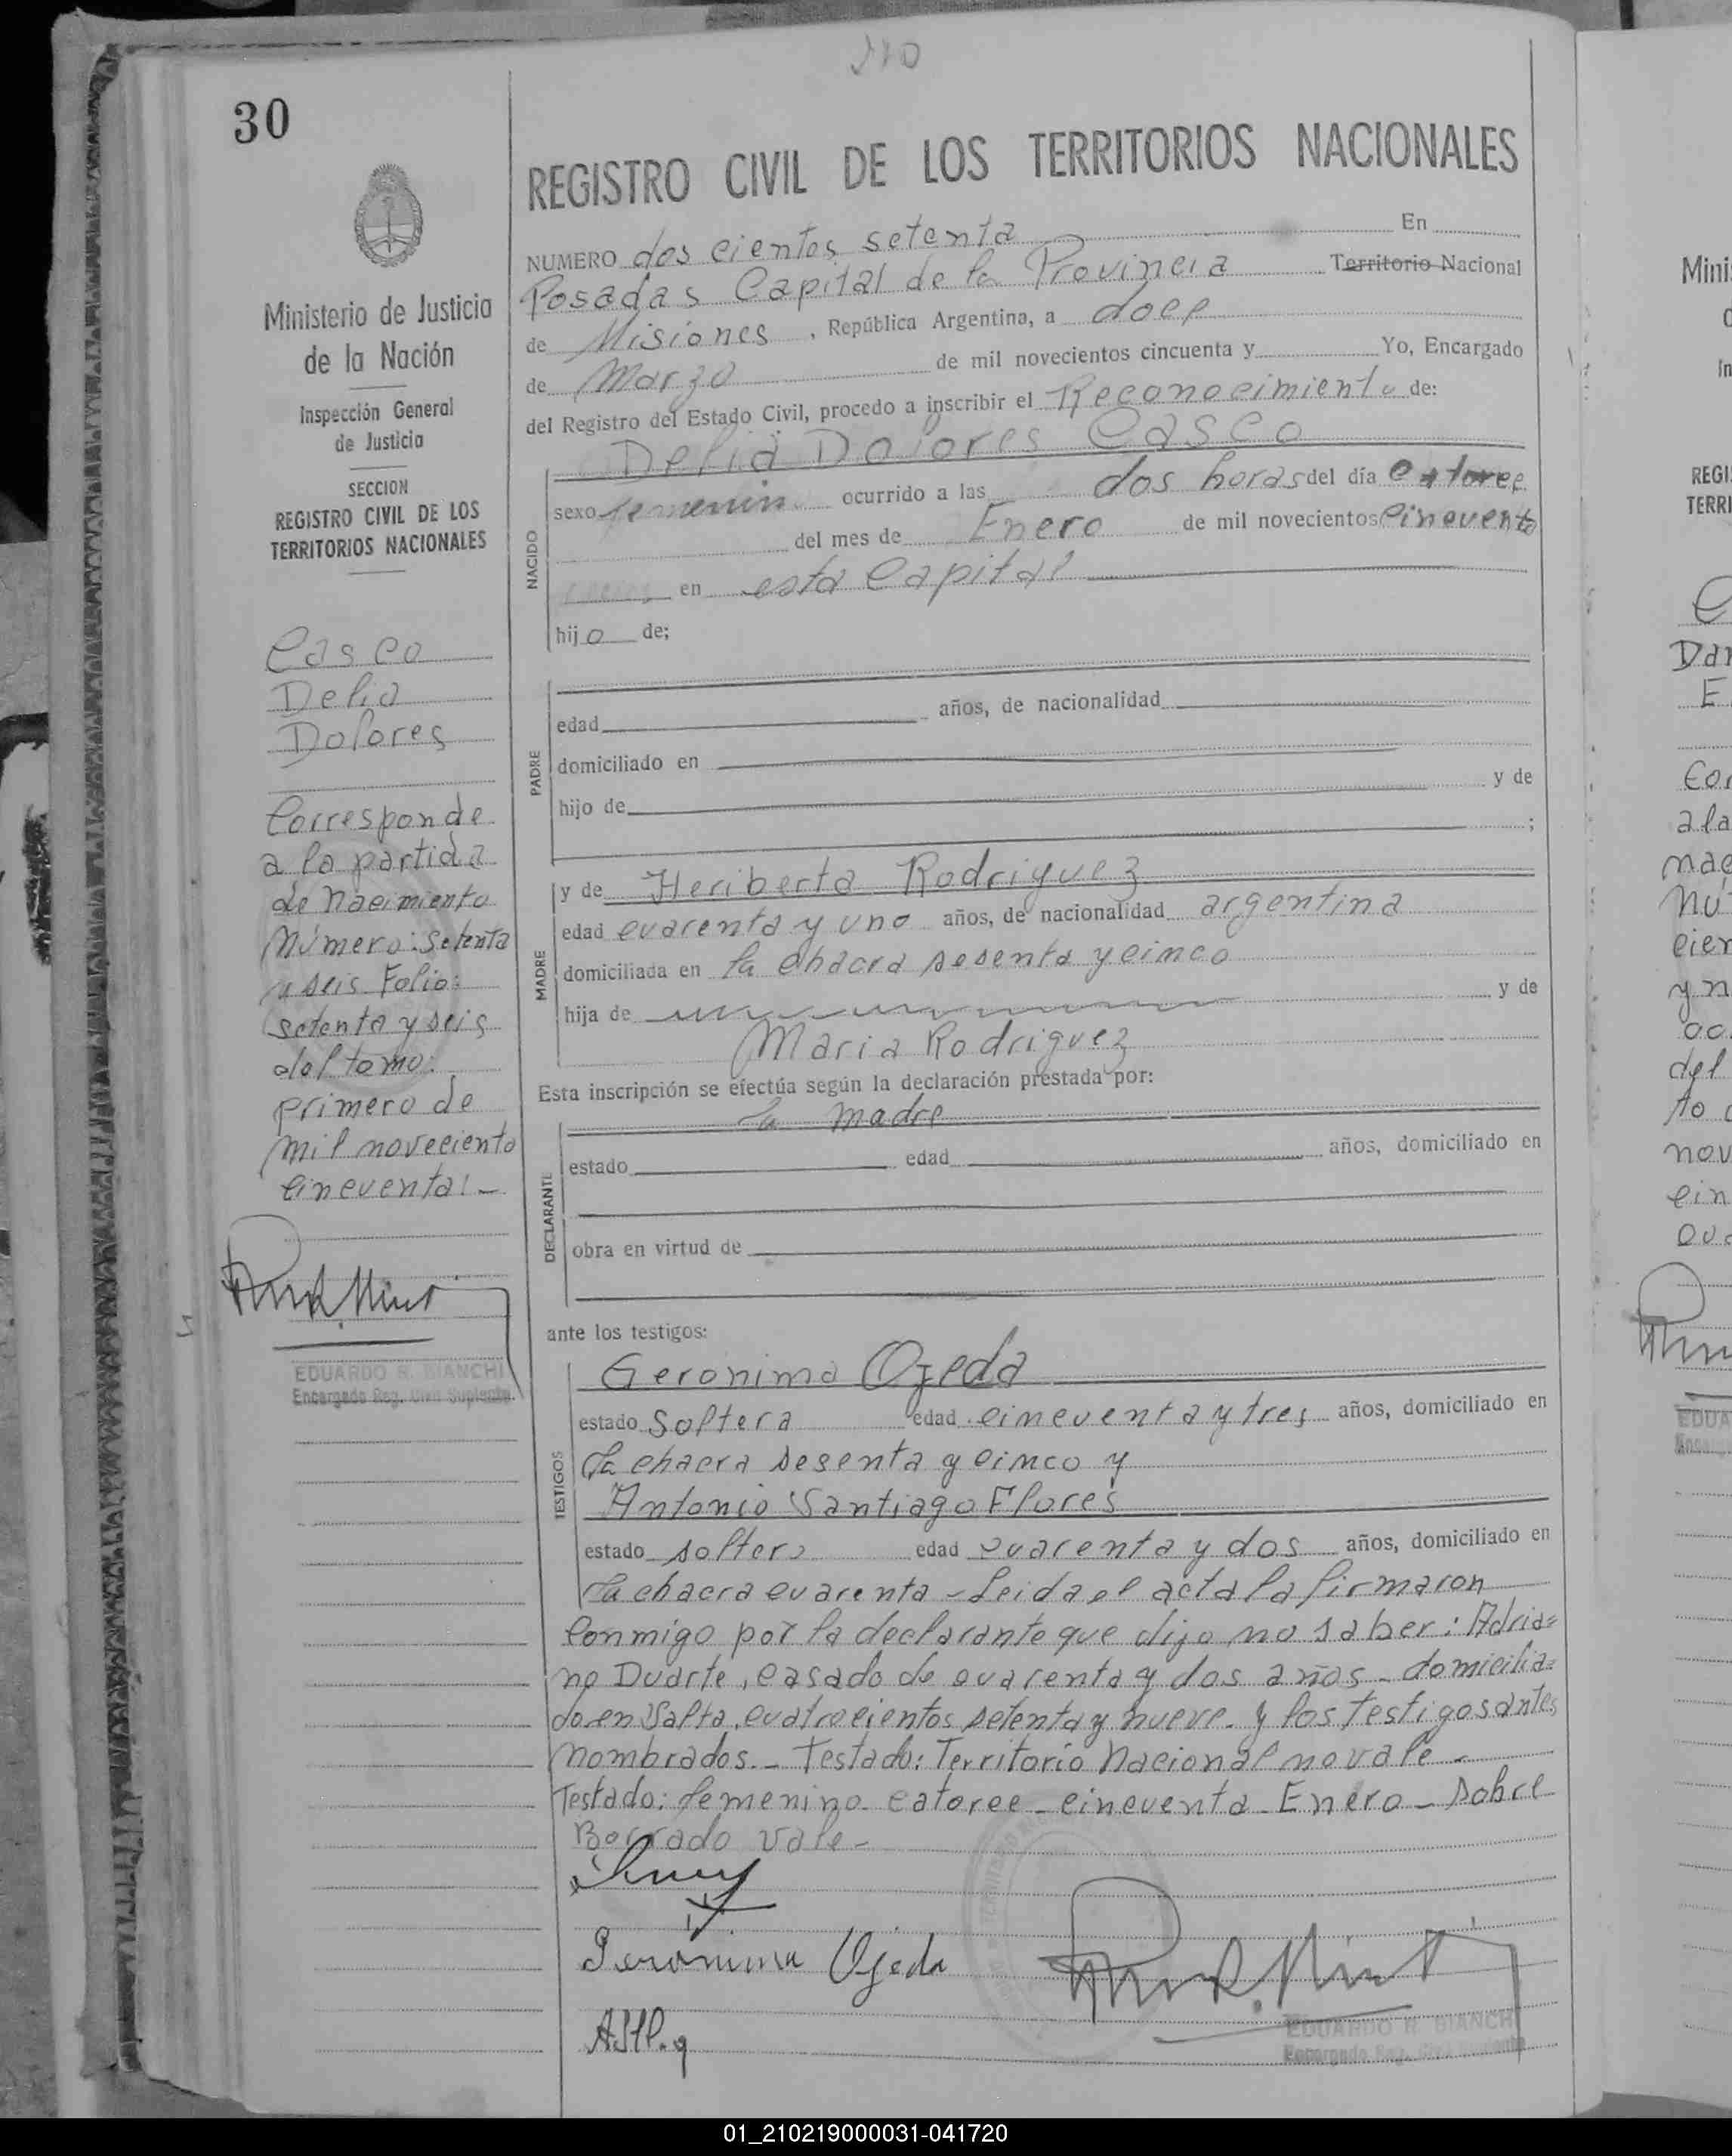 30
REGISTRO CIVIL DE LOS TERRITORIOS NACIONALES
Ministerio de Justicia
de la Nación
Inspección General
de Justicia
SECCION
REGISTRO CIVIL DE LOS
TERRITORIOS NACIONALES
Casco
Delia
Dolores
Corresponde
a la partida
de nacimiento
número: setenta
y seis Folio:
setenta y seis
del tomo:
primero de
mil noveciento
cincuenta!-
EDUARDO R. BIANCHI
Encargado Reg. Civil Suplente
NUMERO dos cientos setenta En
Posadas Capital de la Provincia Territorio Nacional
de Misiones, República Argentina, a doce
de Marzo de mil novecientos cincuenta y Yo, Encargado
del Registro del Estado Civil, procedo a inscribir el Reconocimiento de:
Delia Dolores Casco
NACIDO
sexo femenino ocurrido a las dos horas del día catorce
del mes de Enero de mil novecientos cincuenta
en esta Capital
hijo de;
PADRE
edad años, de nacionalidad
domiciliado en
hijo de y de
;
MADRE
y de Heriberta Rodriguez
edad cuarenta y uno años, de nacionalidad argentina
domiciliada en la chacra sesenta y cinco
hija de y de
Maria Rodriguez
Esta inscripción se efectúa según la declaración prestada por:
la madre
DECLARANTE
estado edad años, domiciliado en
obra en virtud de
ante los testigos:
TESTIGOS
Geronima Ojeda
estado Soltera edad cincuenta y tres años, domiciliado en
la chacra sesenta y cinco y
Antonio Santiago Flores
estado soltero edad cuarenta y dos años, domiciliado en
la chacra cuarenta - Leida el acta la firmaron
conmigo por la declarante que dijo no saber: Adria=
no Duarte, casado de cuarenta y dos años - domicilia=
do en Salta, cuatrocientos setenta y nueve - y los testigos antes
nombrados. - Testado: Territorio Nacional no vale -
Testado: femenino - catorce - cincuenta - Enero - sobre
Borrado vale -
Geronima Ojeda
EDUARDO R. BIANCHI
Encargado Reg. Civil Suplente
01_210219000031-041720